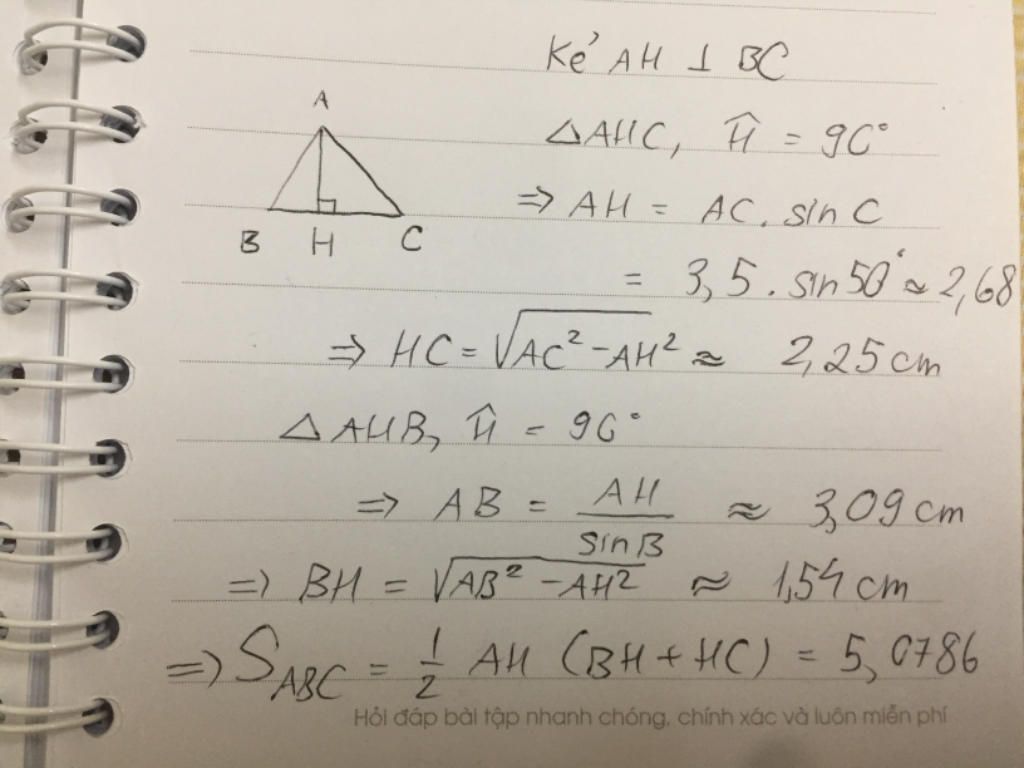 Kẻ AH ⊥ BC
A
△AHC, Ĥ = 90°
⇒ AH = AC . sin C
B H C
= 3,5 . sin 50° ≈ 2,68
⇒ HC = √(AC² - AH²) ≈ 2,25 cm
△AHB, Ĥ = 90°
⇒ AB = AH / sin B ≈ 3,09 cm
⇒ BH = √(AB² - AH²) ≈ 1,54 cm
⇒ S_ABC = 1/2 AH (BH + HC) = 5,0786
Hỏi đáp bài tập nhanh chóng, chính xác và luôn miễn phí